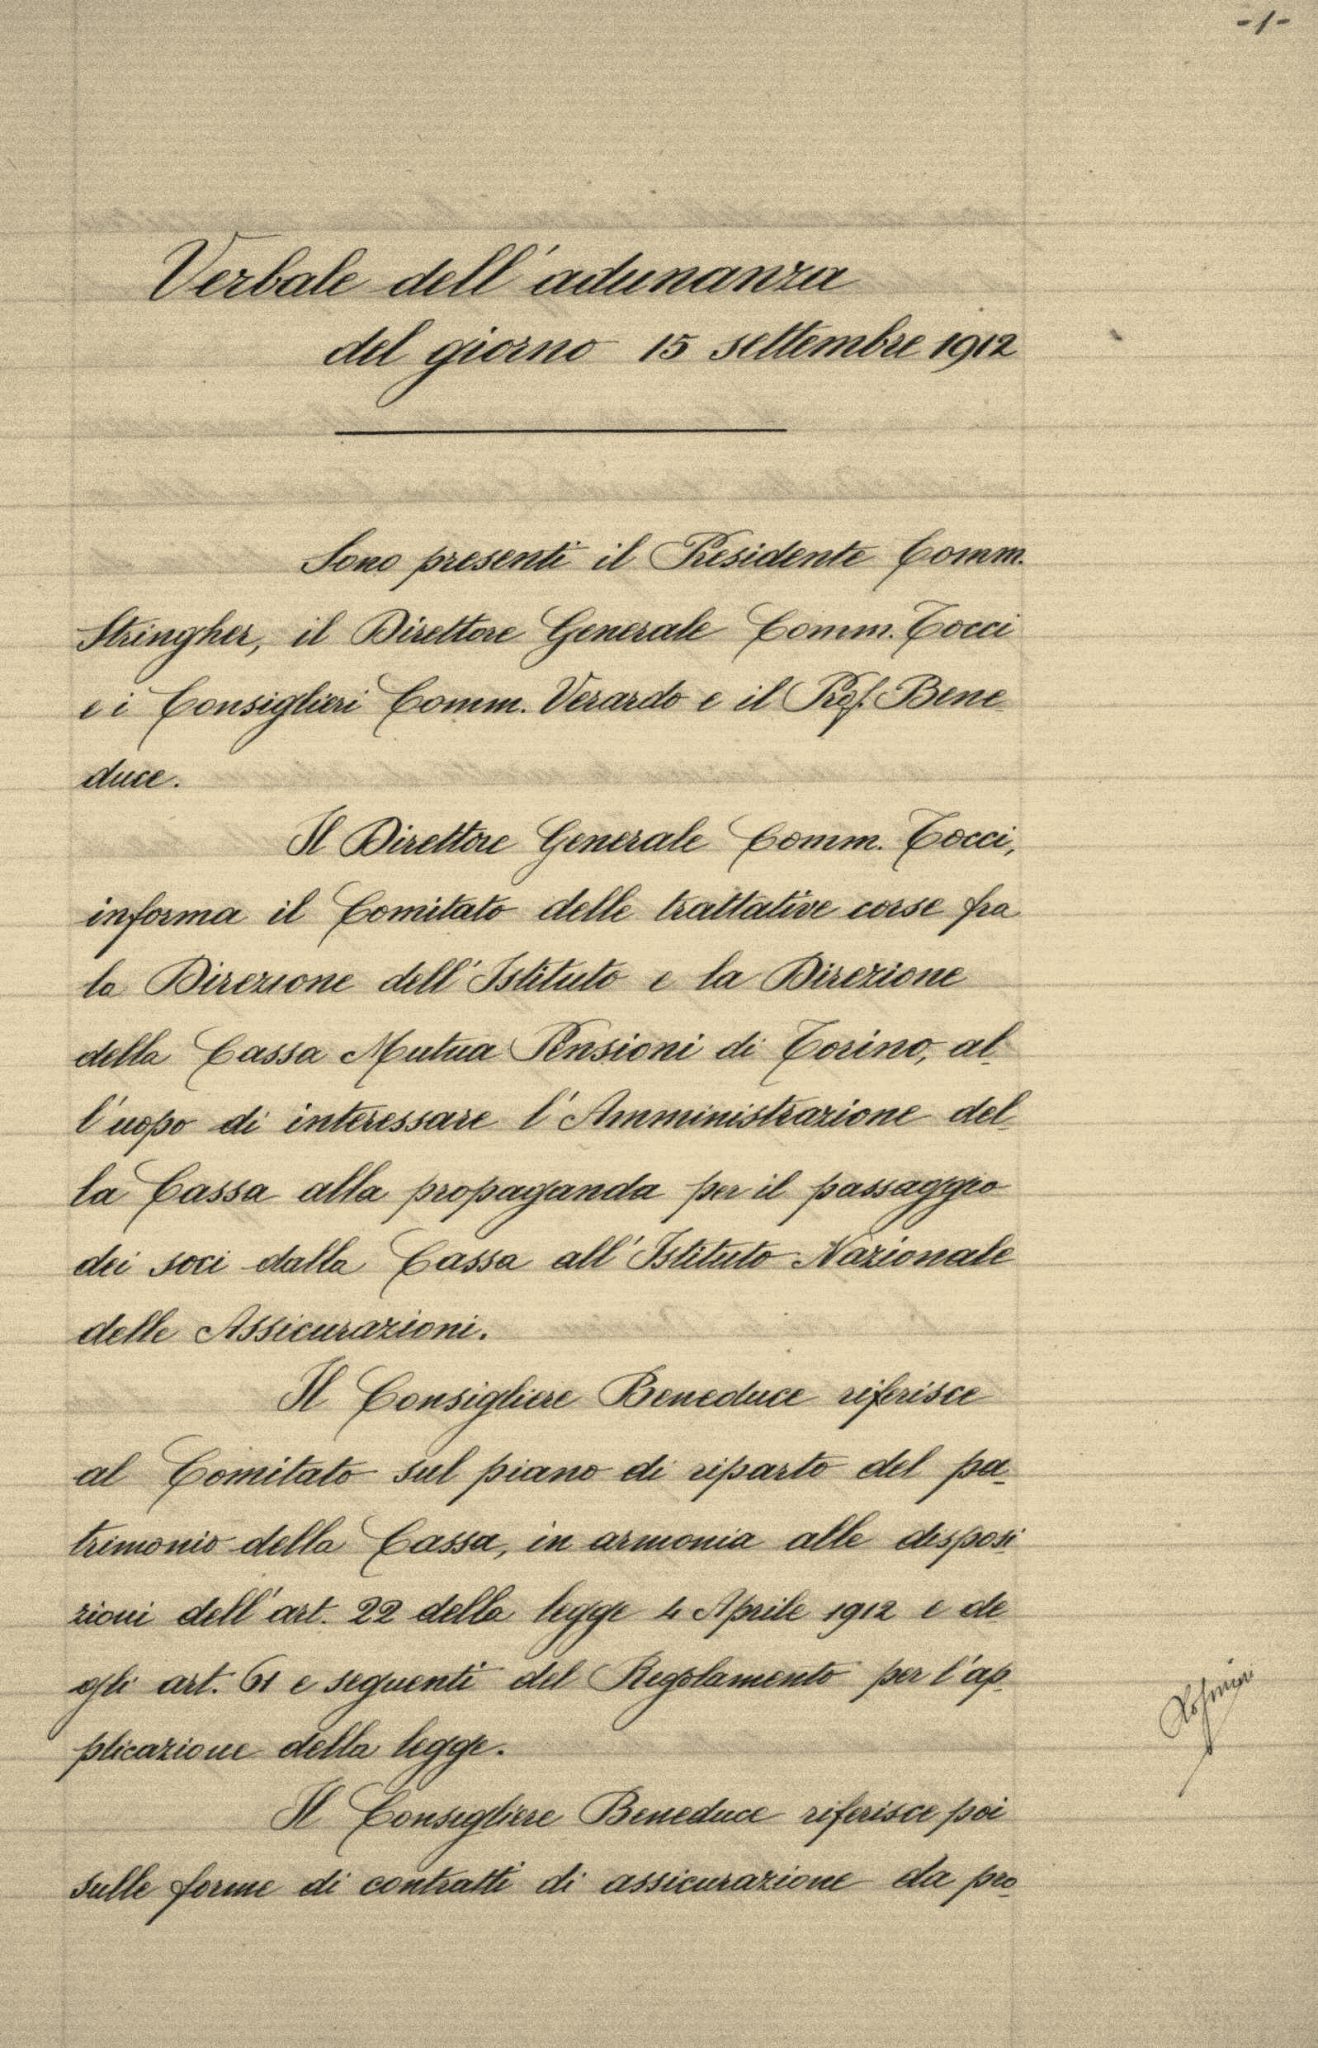 -1-
Verbale dell'adunanza
del giorno 15 settembre 1912
Sono presenti il Presidente Comm.
Stringher, il Direttore Generale Comm. Tocci
e i Consiglieri Comm. Verardo e il Prof. Bene
duce.
Il Direttore Generale Comm. Tocci,
informa il Comitato delle trattative corse fra
la Direzione dell'Istituto e la Direzione
della Cassa Mutua Pensioni di Torino, al-
l'uopo di interessare l'Amministrazione del-
la Cassa alla propaganda per il passaggio
dei soci dalla Cassa all'Istituto Nazionale
delle Assicurazioni.
Il Consigliere Beneduce riferisce
al Comitato sul piano di riparto del pa-
trimonio della Cassa, in armonia alle disposi
zioni dell'art. 22 della legge 4 Aprile 1912 e de
gli art. 61 e seguenti del Regolamento per l'ap-
plicazione della legge.
Il Consigliere Beneduce riferisce poi
sulle forme di contratti di assicurazione da pro-